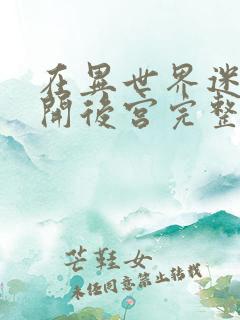 在異世界迷
開後宮完整
芒鞋女
未經同意禁止轉載